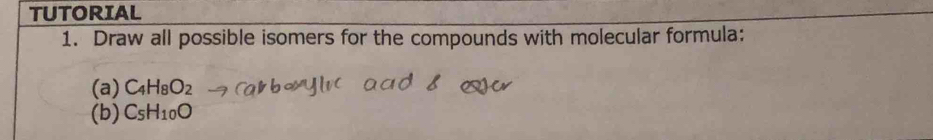 TUTORIAL
1. Draw all possible isomers for the compounds with molecular formula:
(a) C4H8O2 → carboxylic acid & ester
(b) C5H10O